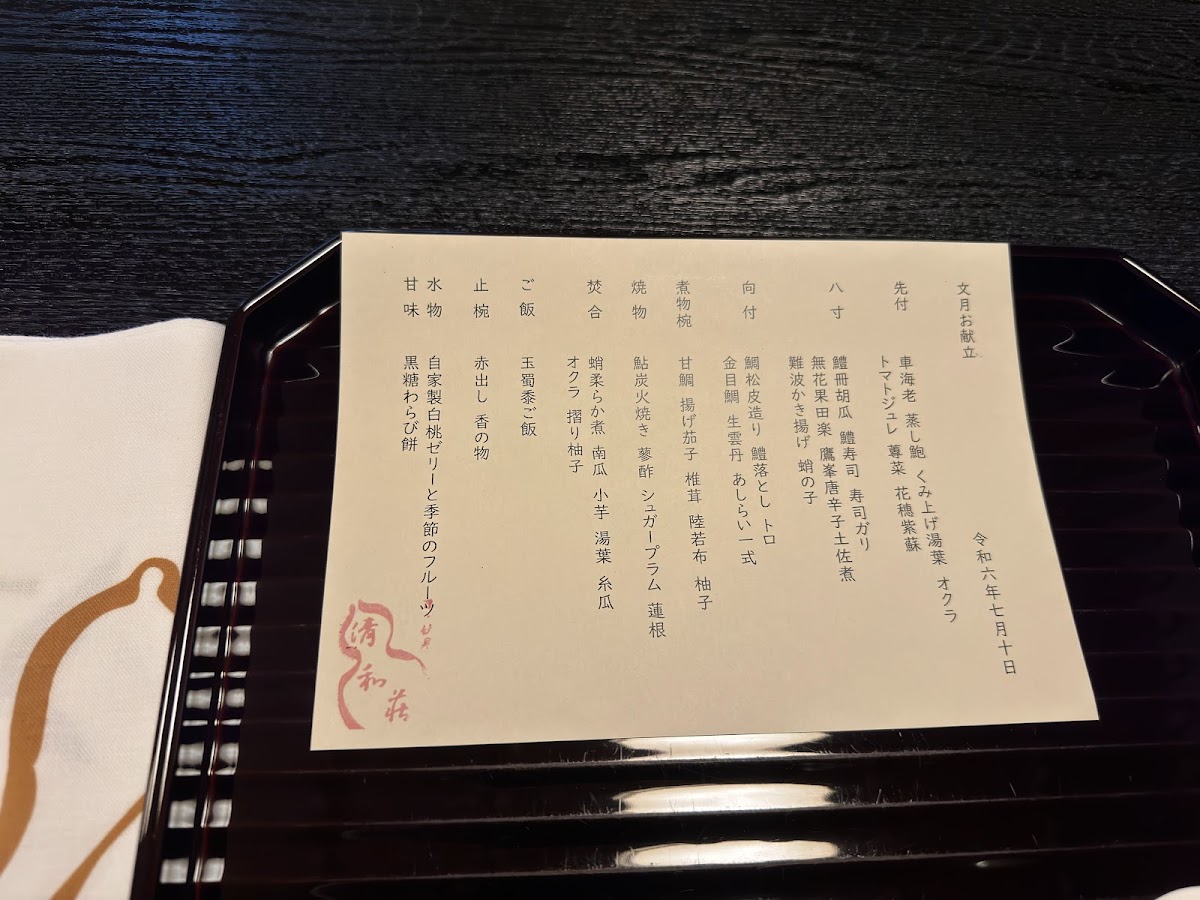 文月お献立
令和六年七月十日
先付
車海老 蒸し鮑 くみ上げ湯葉 オクラ
トマトジュレ 蓴菜 花穂紫蘇
八寸
鱧冊胡瓜 鱧寿司 寿司ガリ
無花果田楽 鷹峯唐辛子土佐煮
難波かき揚げ 蛸の子
向付
鯛松皮造り 鱧落とし トロ
金目鯛 生雲丹 あしらい一式
煮物椀
甘鯛 揚げ茄子 椎茸 陸若布 柚子
焼物
鮎炭火焼き 蓼酢 シュガープラム 蓮根
焚合
蛸柔らか煮 南瓜 小芋 湯葉 糸瓜
オクラ 摺り柚子
ご飯
玉蜀黍ご飯
止椀
赤出し 香の物
水物
自家製白桃ゼリーと季節のフルーツ
甘味
黒糖わらび餅
清和荘